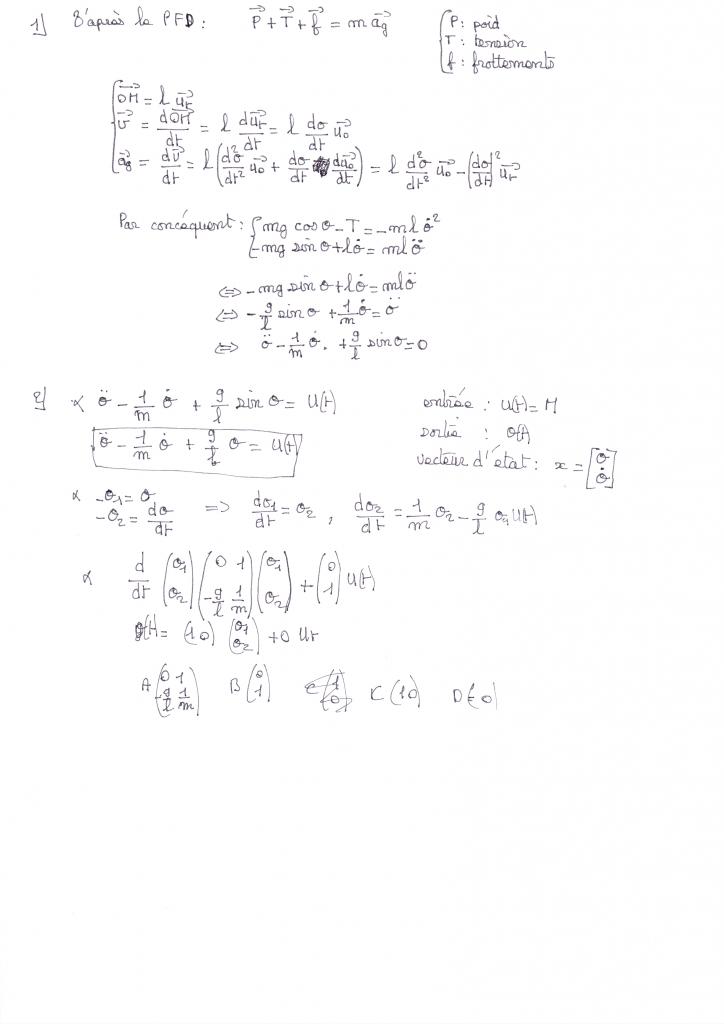 1) D'après le PFD : P⃗ + T⃗ + f⃗ = m a⃗g { P : poid
T : tension
f : frottements
{ OM⃗ = l u⃗r
v⃗ = dOM⃗/dt = l du⃗r/dt = l dθ/dt u⃗θ
a⃗g = dv⃗/dt = l (d²θ/dt² u⃗θ + dθ/dt du⃗θ/dt) = l d²θ/dt² u⃗θ - (dθ/dt)² u⃗r
Par concéquent : { mg cos θ - T = - m l θ̇²
- mg sin θ + l θ̇ = m l θ̈
⇔ - mg sin θ + l θ̇ = m l θ̈
⇔ - g/l sin θ + 1/m θ̇ = θ̈
⇔ θ̈ - 1/m θ̇ . + g/l sin θ = 0
2) α θ̈ - 1/m θ̇ + g/l sin θ = U(t) entrée : U(t) = M
θ̈ - 1/m θ̇ + g/l θ = U(t) sortie : θ(t)
vecteur d'état : x = [θ θ̇]
α - θ1 = θ
- θ2 = dθ/dt => dθ1/dt = θ2 , dθ2/dt = 1/m θ2 - g/l θ1 U(t)
α d/dt (θ1 θ2) (0 1 -g/l 1/m) (θ1 θ2) + (0 1) U(t)
θ(t) = (1 0) (θ1 θ2) + 0 Ut
A (0 1 -g/l 1/m) B (0 1) C (1 0) D (0)